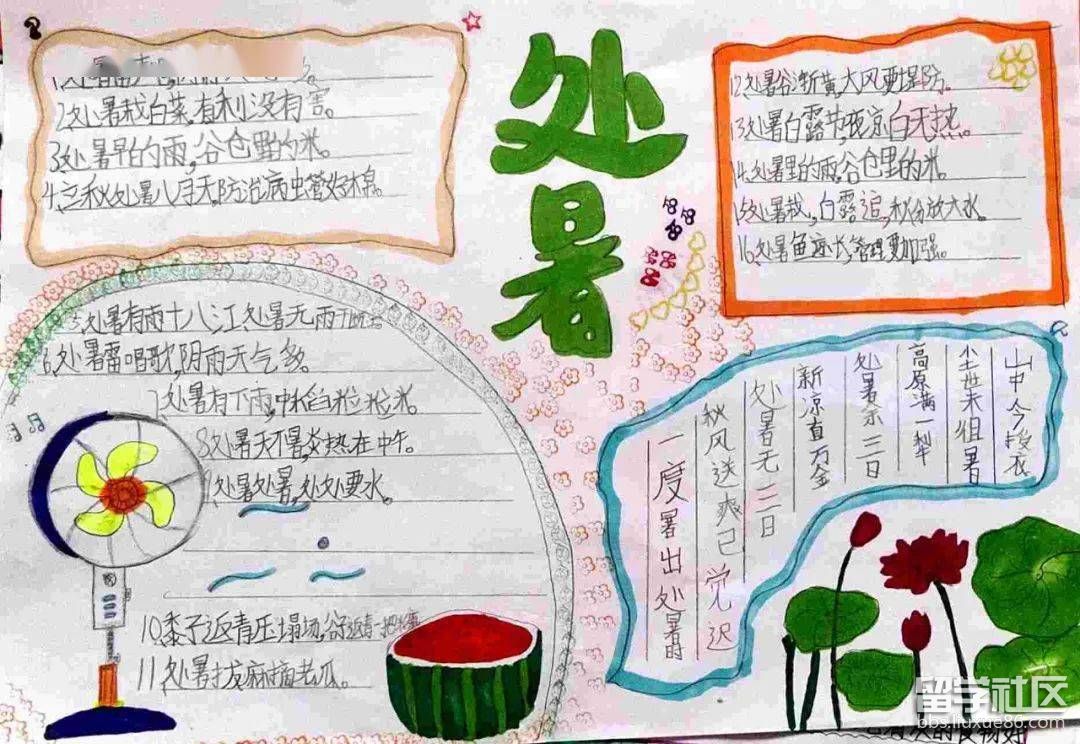 处暑
2.处暑栽白菜,有利没有害。
3.处暑早的雨,谷仓里的米。
4.立秋处暑八月天,防治病虫管好棉。
处暑有雨十八江,处暑无雨
6.处暑雷唱歌,阴雨天气多。
处暑有下雨,中稻粒粒米。
8.处暑天不暑,炎热在中午。
处暑处暑,处处要水。
10.黍子返青压塌场,谷子返青
11.处暑拔麻摘老瓜。
12.处暑谷渐黄,大风要提防。
13.处暑白露节,夜凉白天热。
14.处暑里的雨,谷仓里的米。
15.处暑栽,白露追,秋分放大水。
16.处暑鱼速长,管理要加强。
山中今授衣
尘世未徂暑
高原满一犁
处暑余三日
新凉直万金
处暑无三日
秋风送爽已觉迟
一度暑出处暑时
留学社区
bbs.liuxue86.com